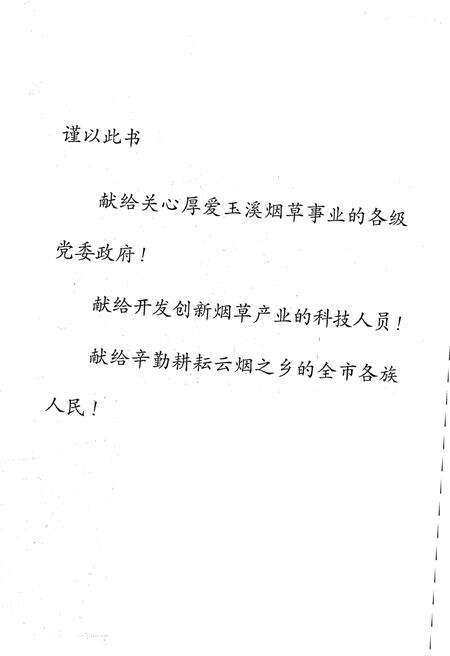 谨以此书
献给关心厚爱玉溪烟草事业的各级
党委政府！
献给开发创新烟草产业的科技人员！
献给辛勤耕耘云烟之乡的全市各族
人民！